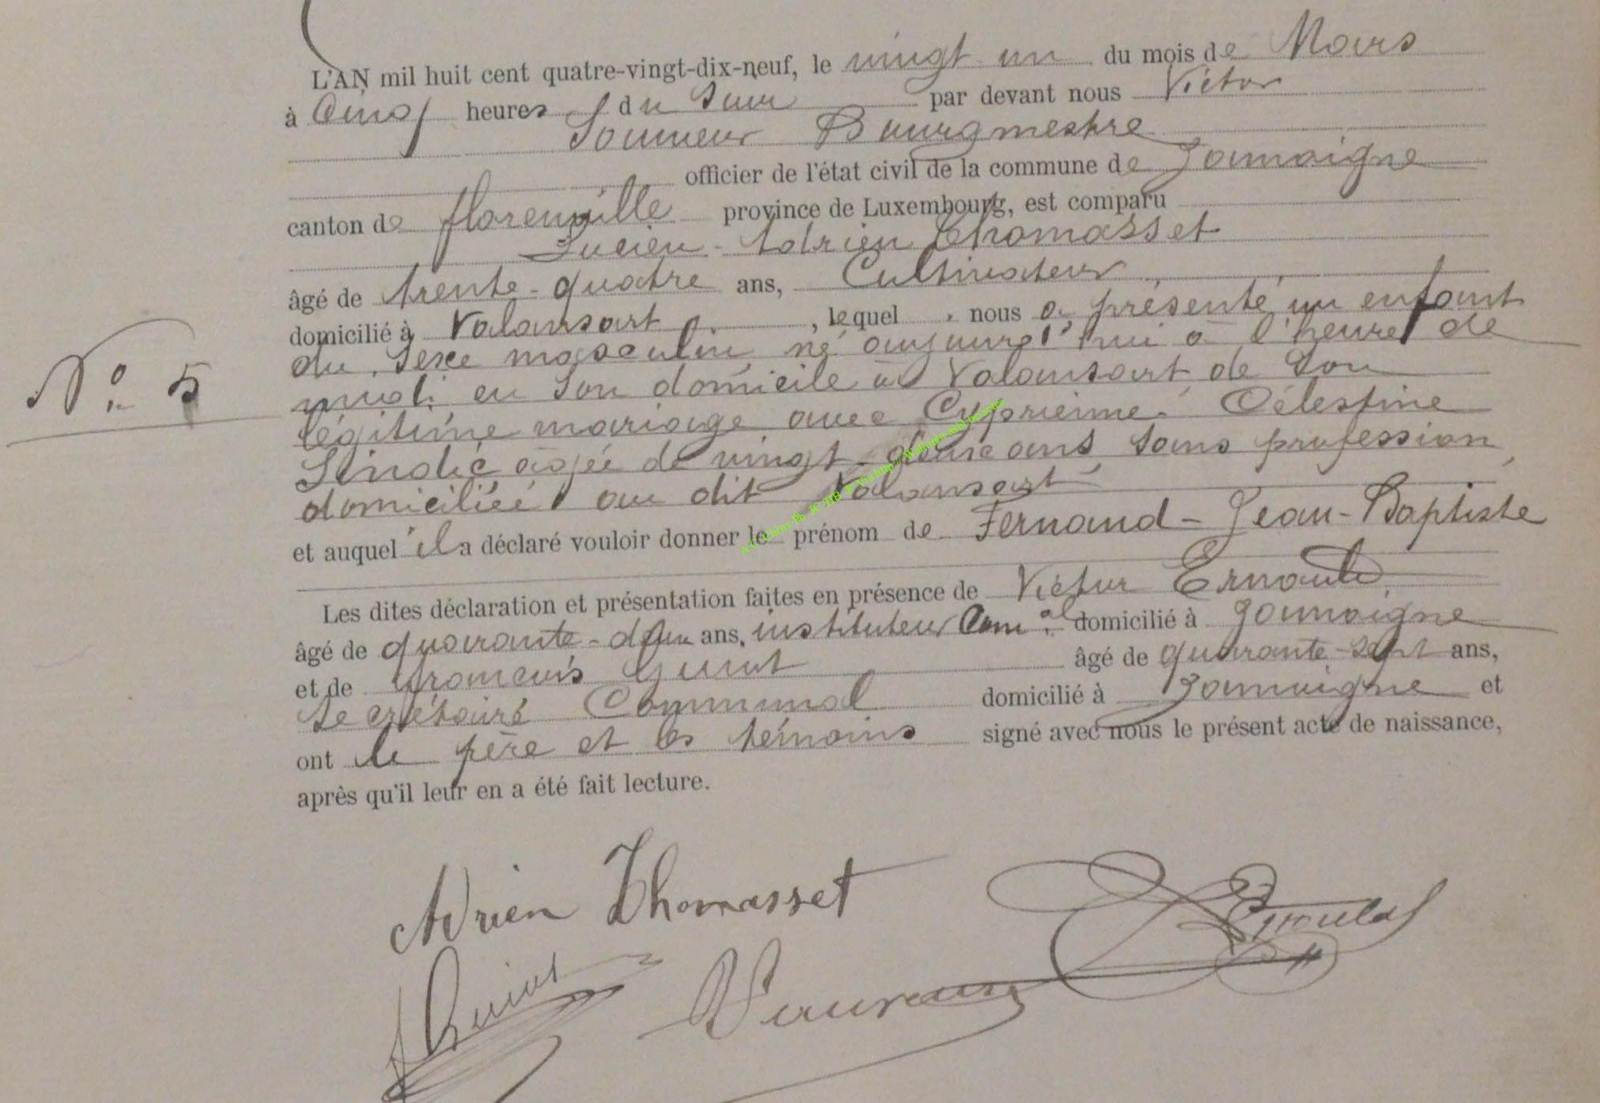 L'AN mil huit cent quatre-vingt-dix-neuf, le vingt un du mois de Mars
à Cinq heures du Soir par devant nous Victor
Bourgmestre
officier de l'état civil de la commune de Jamoigne
canton de florenville province de Luxembourg, est comparu
Lucien-Adrien Thomasset
âgé de trente-quatre ans, Cultivateur
domicilié à Valansart, lequel nous a présenté un enfant
du sexe masculin, né aujourd'hui à l'heure de
N° 5
midi en son domicile au Valansart de son
légitime mariage avec Cyprienne Célestine
âgée de vingt ans sans profession
domiciliée au dit Valansart
et auquel il a déclaré vouloir donner le prénom de Fernand-Jean-Baptiste
Les dites déclaration et présentation faites en présence de Victor
âgé de quarante-deux ans, instituteur Com.al domicilié à Jamoigne
et de François âgé de quarante-sept ans,
Secrétaire Communal domicilié à Jamoigne et
ont le père et les témoins signé avec nous le présent acte de naissance,
après qu'il leur en a été fait lecture.
Adrien Thomasset